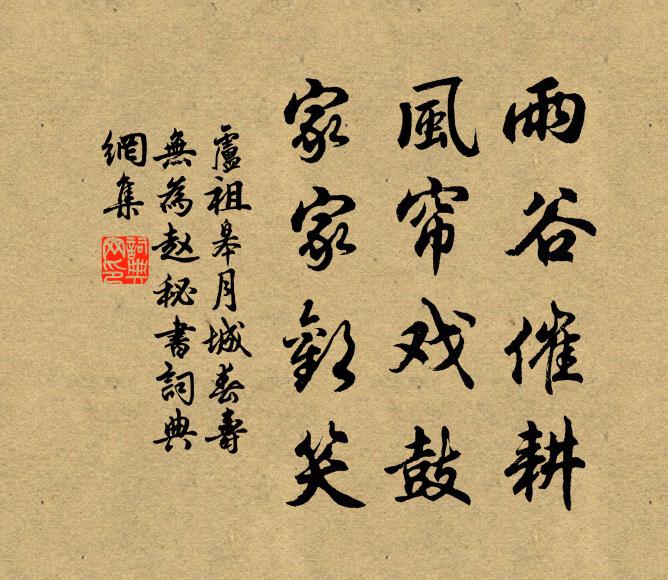 雨谷催耕
風帘戏鼓
家家歡笑
盧祖皋月城春壽
無為赵秘書詞典
網集
詞典
网印